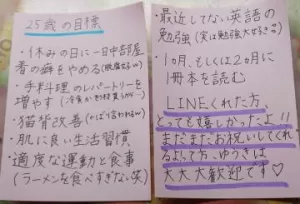 25歳の目標
・休みの日に一日中部屋
着の癖をやめる
・手料理のレパートリーを
増やす
・猫背改善
・肌に良い生活習慣
・適度な運動と食事
(ラーメンを食べすぎない笑)
・最近してない英語の
勉強(実は勉強大好き
・1ヵ月、もしくは2ヵ月に
1冊本を読む
LINEくれた方、
とっても嬉しかったよ!!
まだまだお祝いしてくれ
るよって方、ゆうきは
大大大歓迎です♡